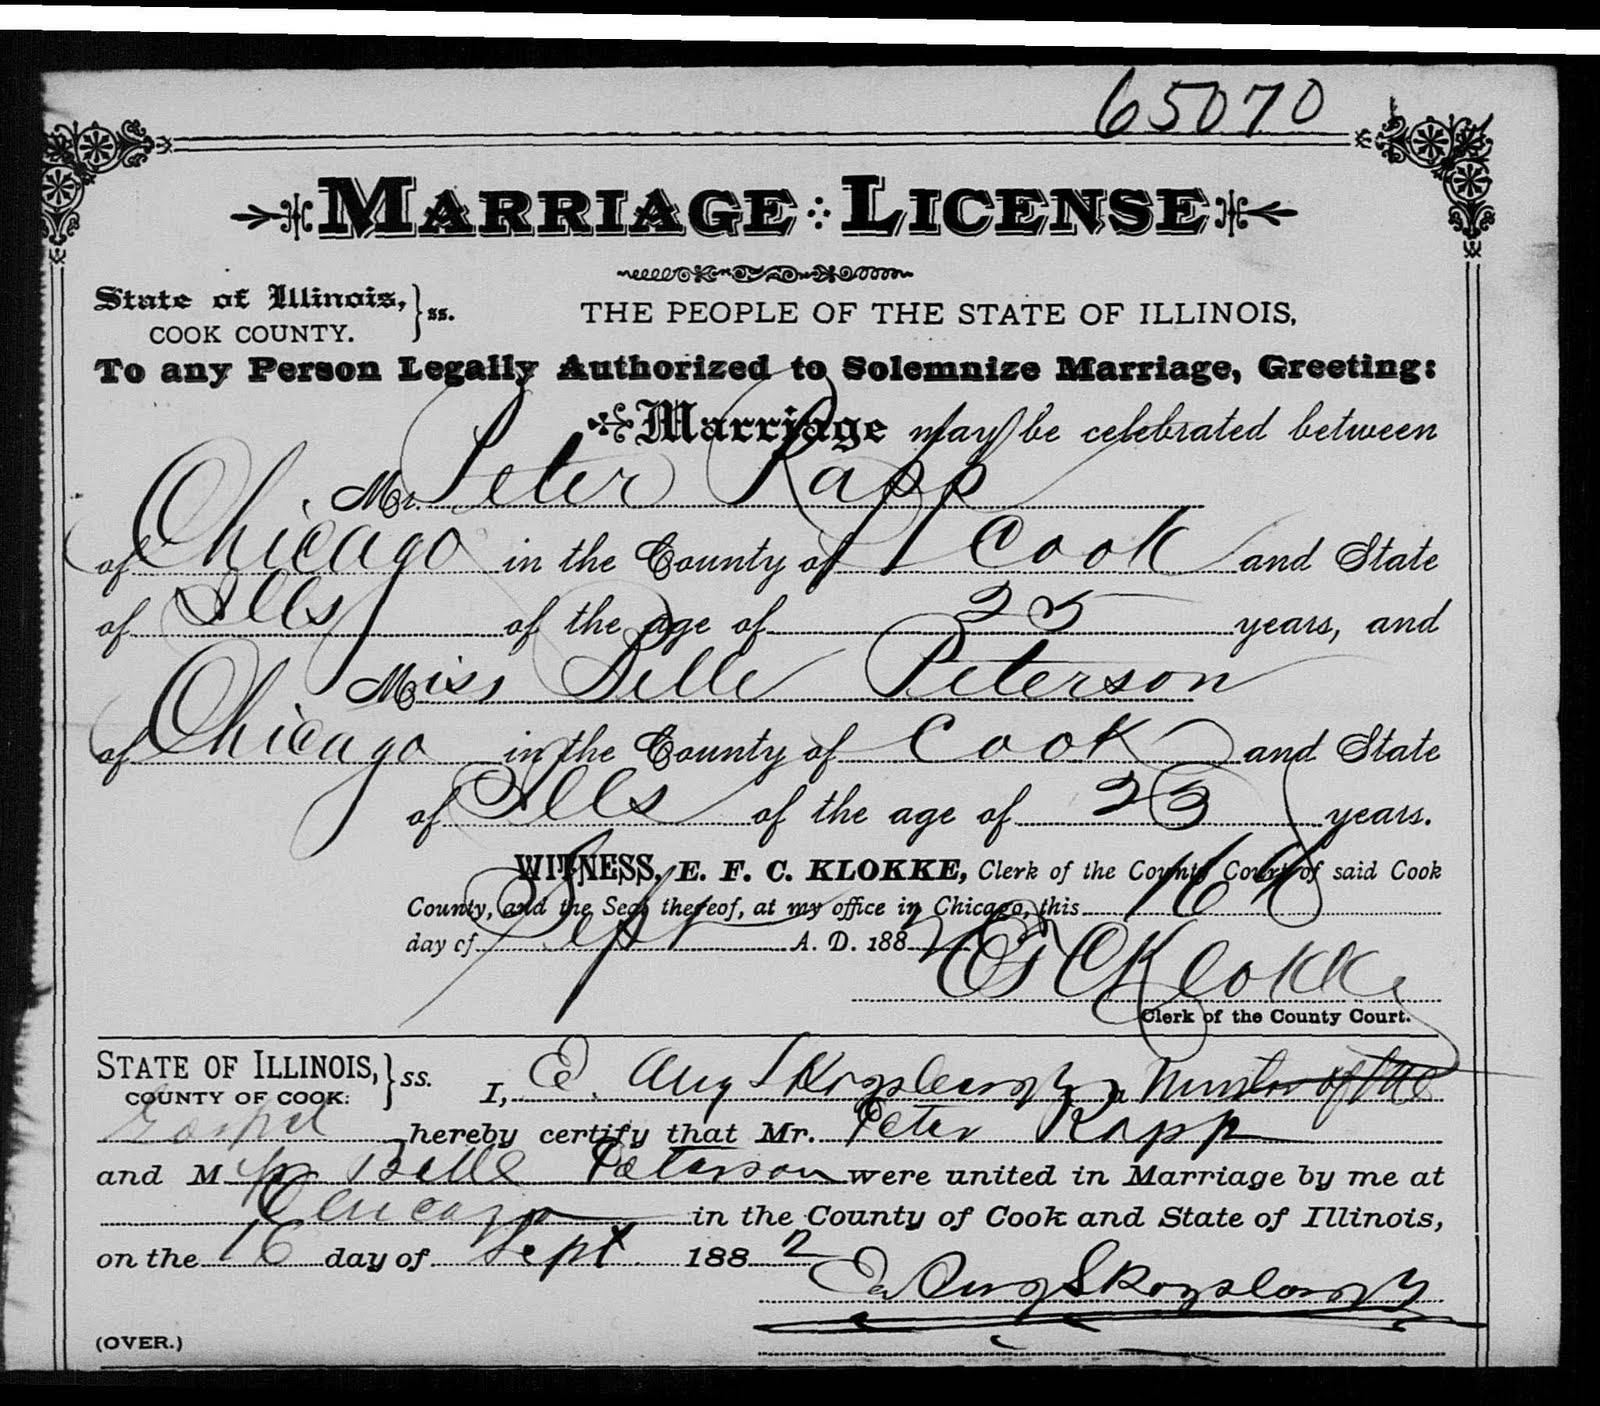 65070
MARRIAGE LICENSE
State of Illinois, } ss.
COOK COUNTY.
THE PEOPLE OF THE STATE OF ILLINOIS,
To any Person Legally Authorized to Solemnize Marriage, Greeting:
Marriage may be celebrated between
Mr. Peter Rapp
of Chicago in the County of Cook and State
of Ills of the age of 25 years, and
Miss Belle Peterson
of Chicago in the County of Cook and State
of Ills of the age of 23 years.
WITNESS, E. F. C. KLOKKE, Clerk of the County Court of said Cook
County, and the Seal thereof, at my office in Chicago, this 16th
day of Sept A. D. 1882
E F C Klokke
Clerk of the County Court.
STATE OF ILLINOIS, } ss.
COUNTY OF COOK:
I, E. Aug Skogsbergh a Minister of the
Gospel hereby certify that Mr. Peter Rapp
and Miss Belle Peterson were united in Marriage by me at
Chicago in the County of Cook and State of Illinois,
on the 16 day of Sept 1882
E. Aug Skogsbergh
(OVER.)